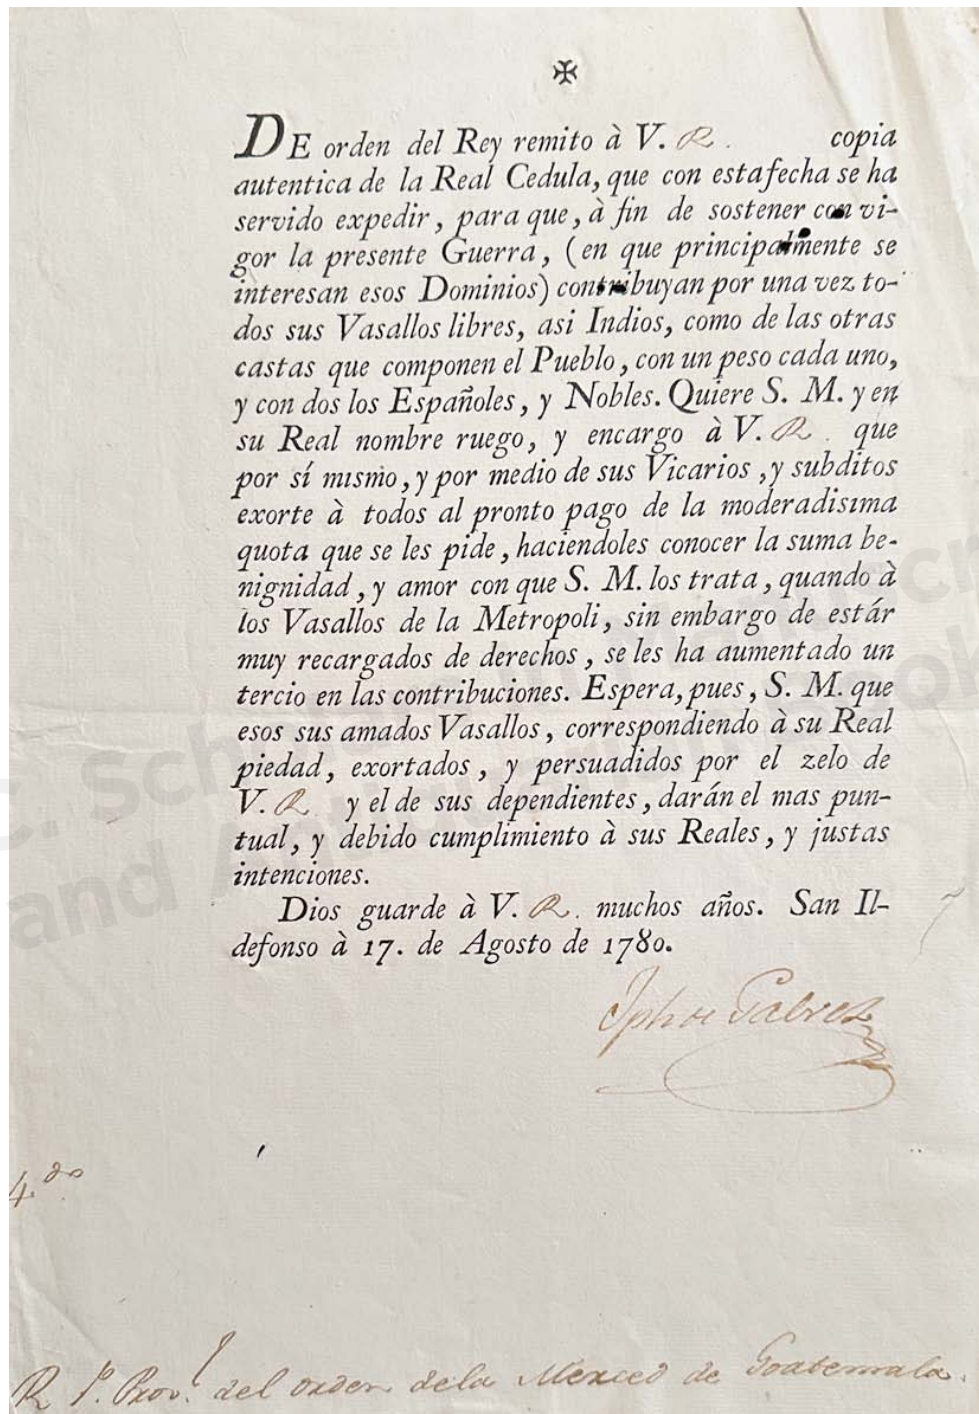 ✠
DE orden del Rey remito à V. R. copia
autentica de la Real Cedula, que con esta fecha se ha
servido expedir, para que, à fin de sostener con vi-
gor la presente Guerra, (en que principalmente se
interesan esos Dominios) contribuyan por una vez to-
dos sus Vasallos libres, asi Indios, como de las otras
castas que componen el Pueblo, con un peso cada uno,
y con dos los Españoles, y Nobles. Quiere S. M. y en
su Real nombre ruego, y encargo à V. R. que
por sí mismo, y por medio de sus Vicarios, y subditos
exorte à todos al pronto pago de la moderadisima
quota que se les pide, haciendoles conocer la suma be-
nignidad, y amor con que S. M. los trata, quando à
los Vasallos de la Metropoli, sin embargo de estár
muy recargados de derechos, se les ha aumentado un
tercio en las contribuciones. Espera, pues, S. M. que
esos sus amados Vasallos, correspondiendo à su Real
piedad, exortados, y persuadidos por el zelo de
V. R. y el de sus dependientes, darán el mas pun-
tual, y debido cumplimiento à sus Reales, y justas
intenciones.
Dios guarde à V. R. muchos años. San Il-
defonso à 17. de Agosto de 1780.
Jph de Galvez
4.do
R. P. Prov.l del orden de la Merced de Goatemala.